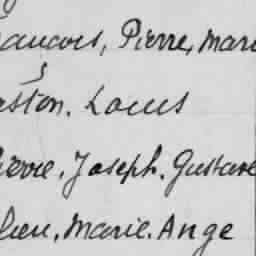 ançois, Pierre, Mari
aston. Louis
ierre. Joseph. Gustave
lien. Marie. Ange